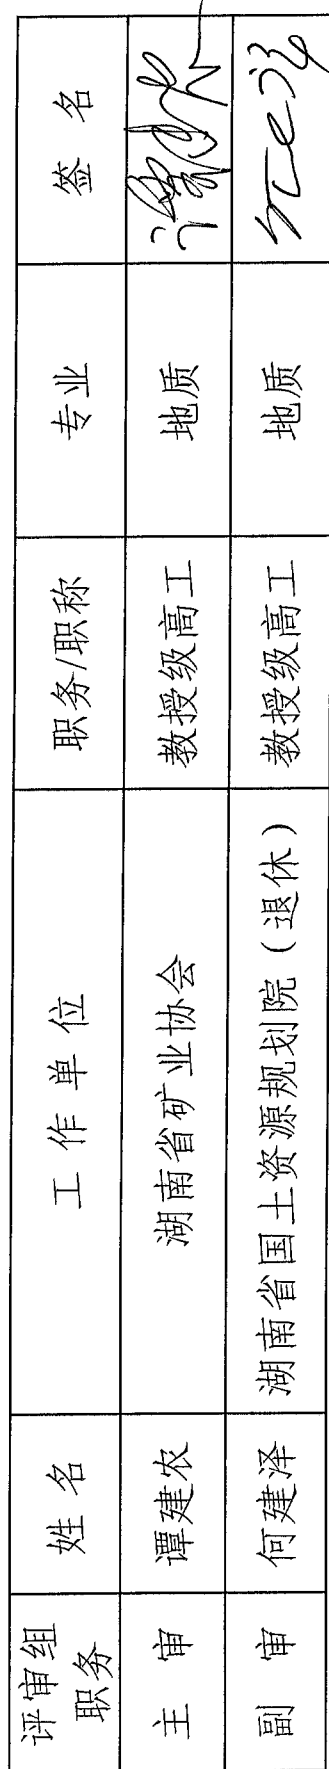 评审组职务 姓名 工作单位 职务/职称 专业 签名
主审 谭建农 湖南省矿业协会 教授级高工 地质
副审 何建泽 湖南省国土资源规划院（退休） 教授级高工 地质